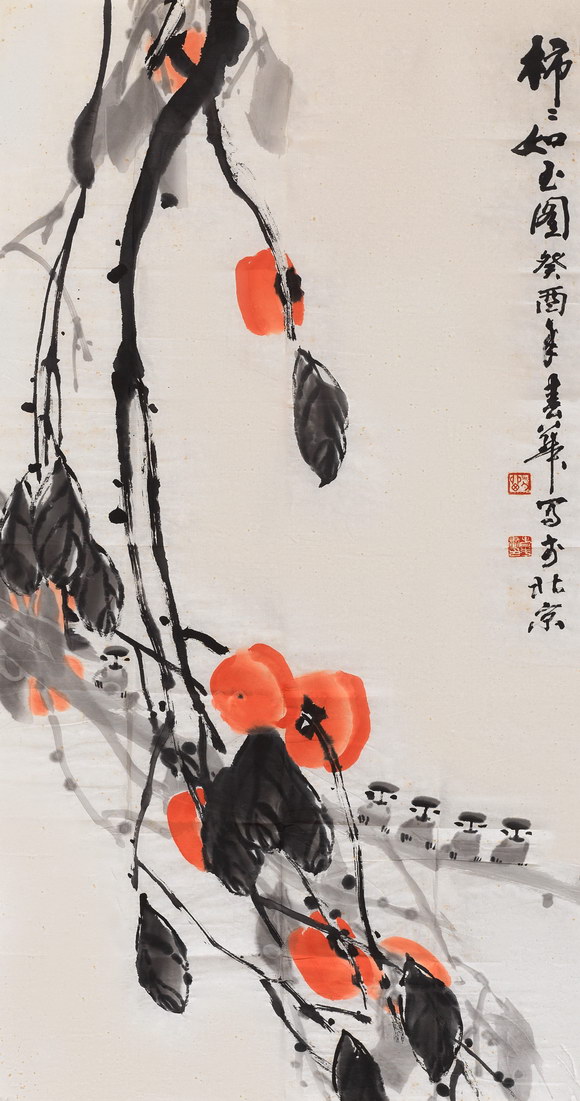 柿柿如玉图癸酉年春华写于北京